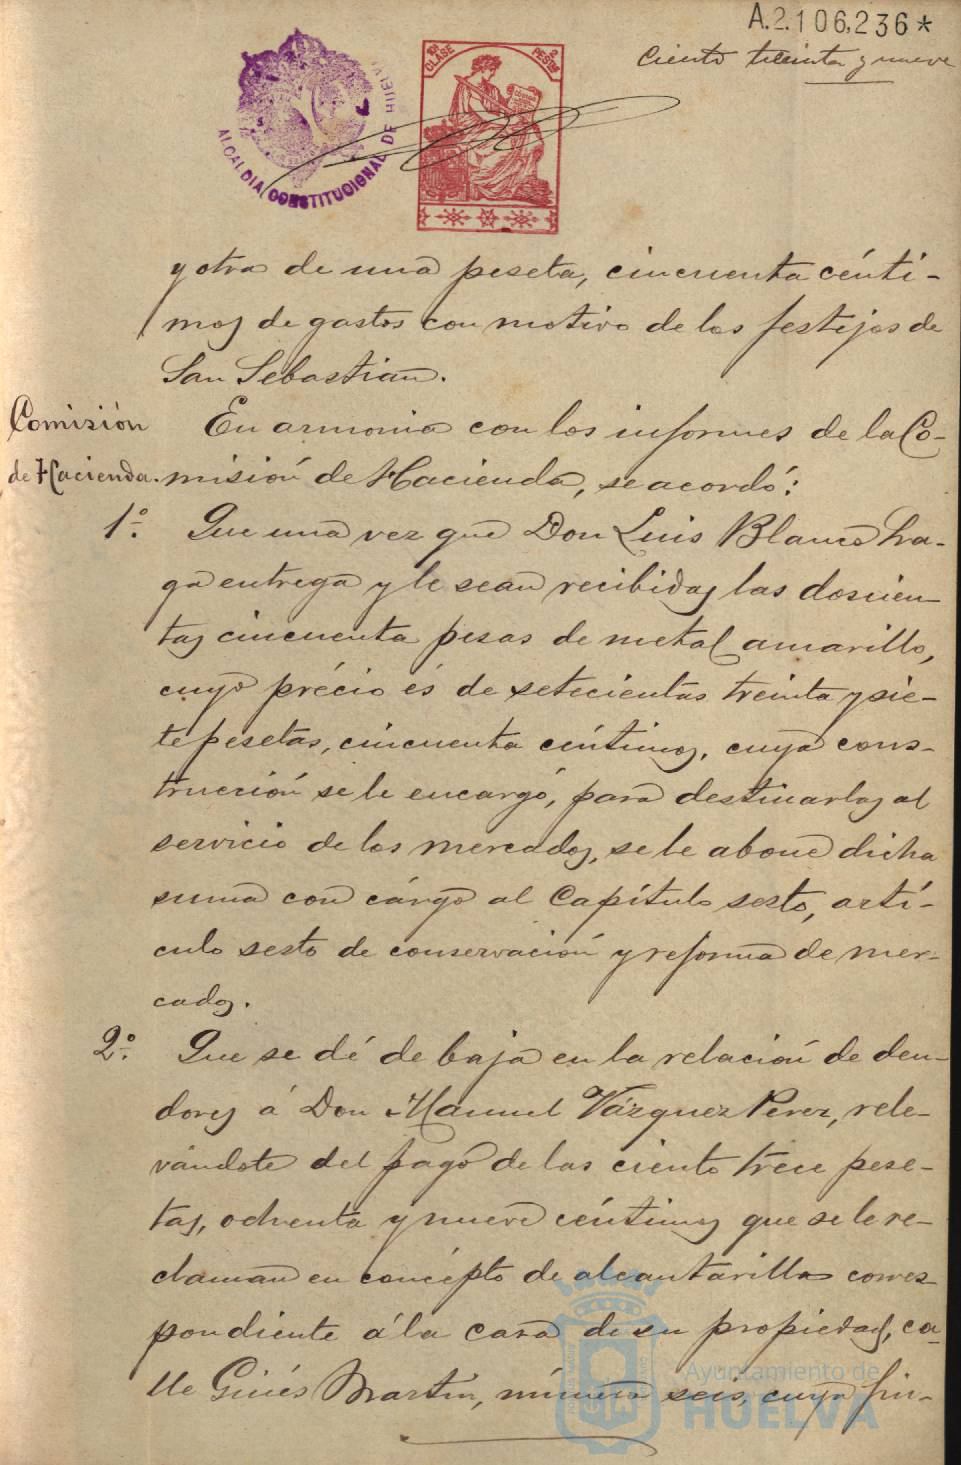 A.2.106,236*
ciento treinta y nueve
ALCALDIA CONSTITUCIONAL DE HUELVA
10ª CLASE
2 PESTAS
y otra de una peseta, cincuenta cénti-
mos de gastos con motivo de los festejos de
San Sebastian.
Comisión
de Hacienda.
En armonia con los informes de la Co-
misión de Hacienda, se acordó:
1º.
Que una vez que Don Luis Blanco ha-
ga entrega y le sean recibidas las doscien-
tas cincuenta pesas de metal amarillo,
cuyo précio és de setecientas treinta y sie-
te pesetas, cincuenta céntimos, cuya cons-
trucción se le encargó, para destinarlas al
servicio de los mercados, se le abone dicha
suma con cárgo al Capítulo sesto, artí-
culo sesto de conservación y reforma de mer-
cados.
2º.
Que se dé de baja en la relación de deu-
dores á Don Manuel Vázquez Perez, rele-
vándole del pago de las ciento trece pese-
tas, ochenta y nueve céntimos que se le re-
claman en concépto de alcantarilla corres-
pondiente á la casa de su propiedad, ca-
lle Ginés Martín, número seis, cuya fin-
Ayuntamiento de
HUELVA